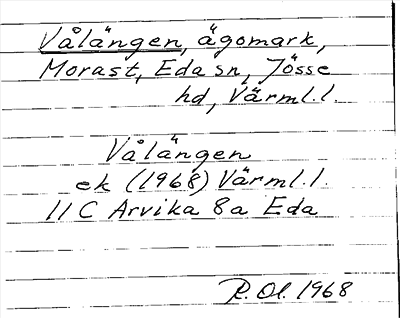 Vålängen, ägomark,
Morast, Eda sn, Jösse
hd, Värml.l.
Vålängen
ek (1968) Värml.l.
11C Arvika 8a Eda
R. Ol. 1968